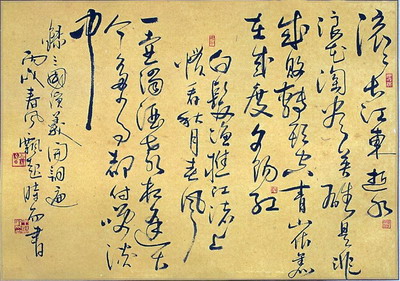 滚々长江東逝水
浪花淘尽英雄是非
成敗轉頭空青山依舊
在几度夕陽紅
白髮漁樵江渚上
慣看秋月春風
一壺濁酒喜相逢古
今多少事都付笑談
中
錄三國演義開詞
丙戌春風飄起時而書